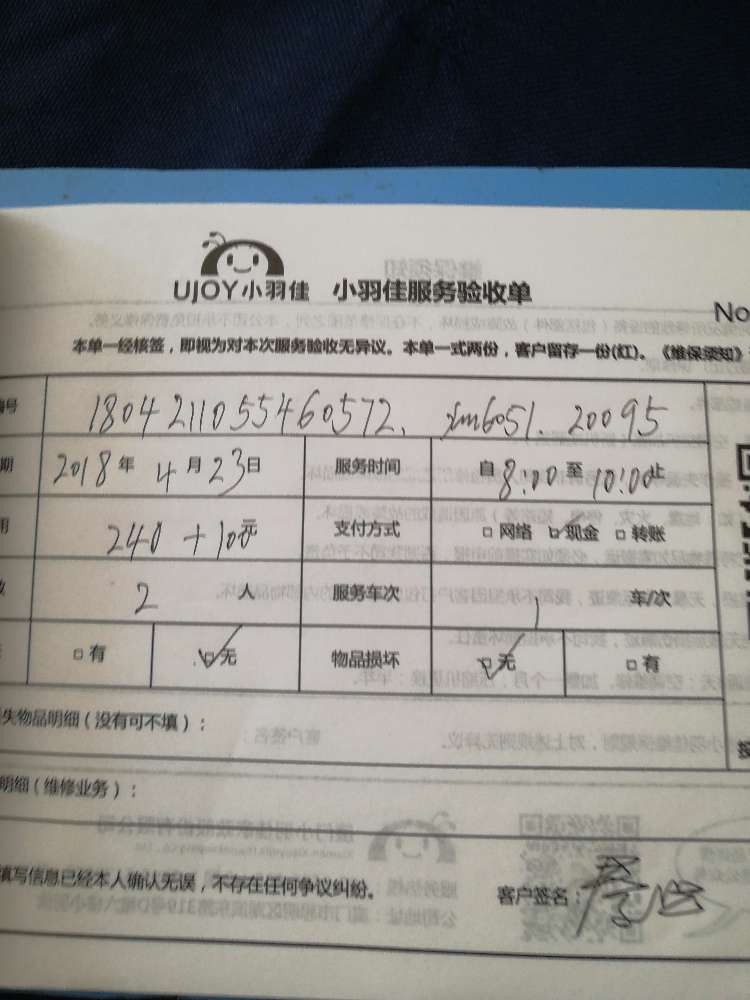 UJOY小羽佳 小羽佳服务验收单
No
本单一经核签，即视为对本次服务验收无异议。本单一式两份，客户留存一份(红)。《维保须知》
编号 1804211055460572、xm6051. 20095
期 2018年 4月23日 服务时间 自8:00至10:00止
用 240+100元 支付方式 □网络 ☑现金 □转账
数 2 人 服务车次 1 车/次
□有 ☑无 物品损坏 ☑无 □有
失物品明细(没有可不填)：
明细(维修业务)：
填写信息已经本人确认无误，不存在任何争议纠纷。 客户签名：